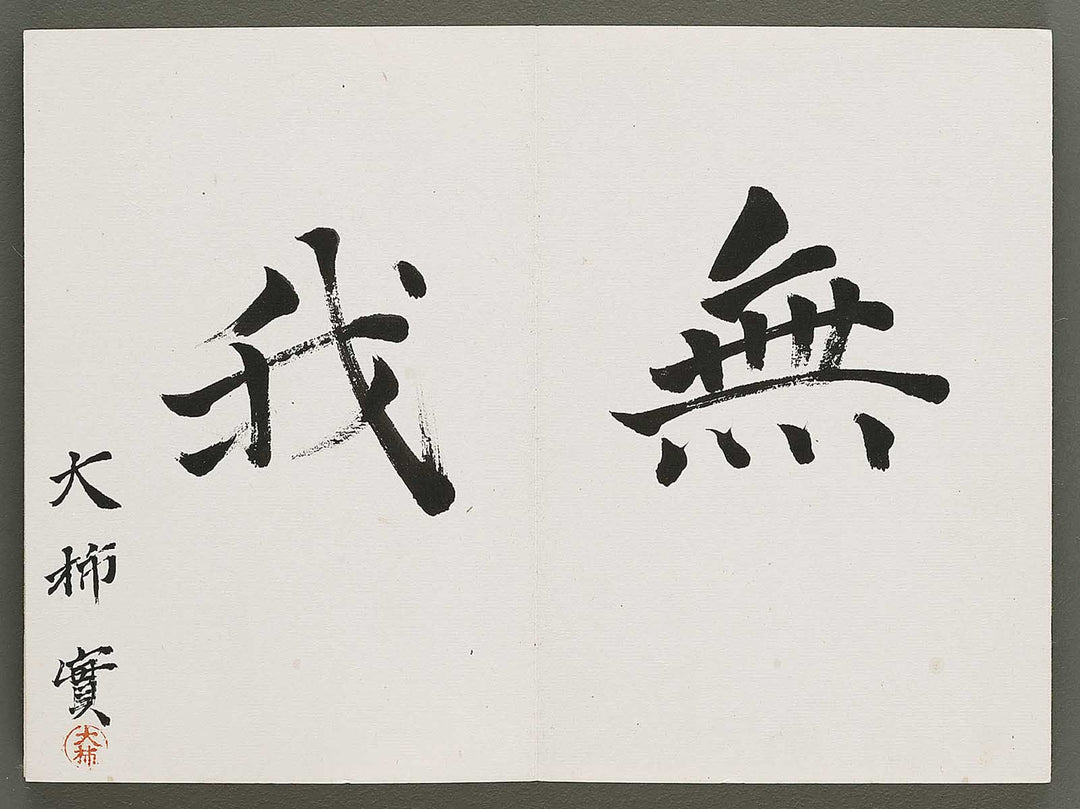 無我
大柿實
大柿